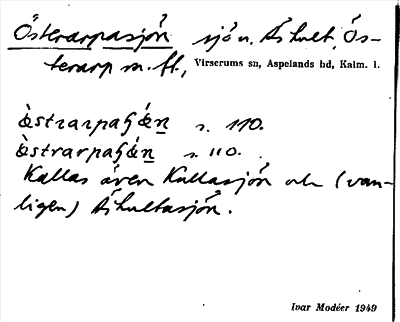 Österarpasjön sjö u. Åhult, Ös-
terarp m. fl., Virserums sn, Aspelands hd, Kalm. l.
s. 110.
s. 110.
Kallas även Kullasjön och (van-
ligen) Åhultasjön.
Ivar Modéer 1949